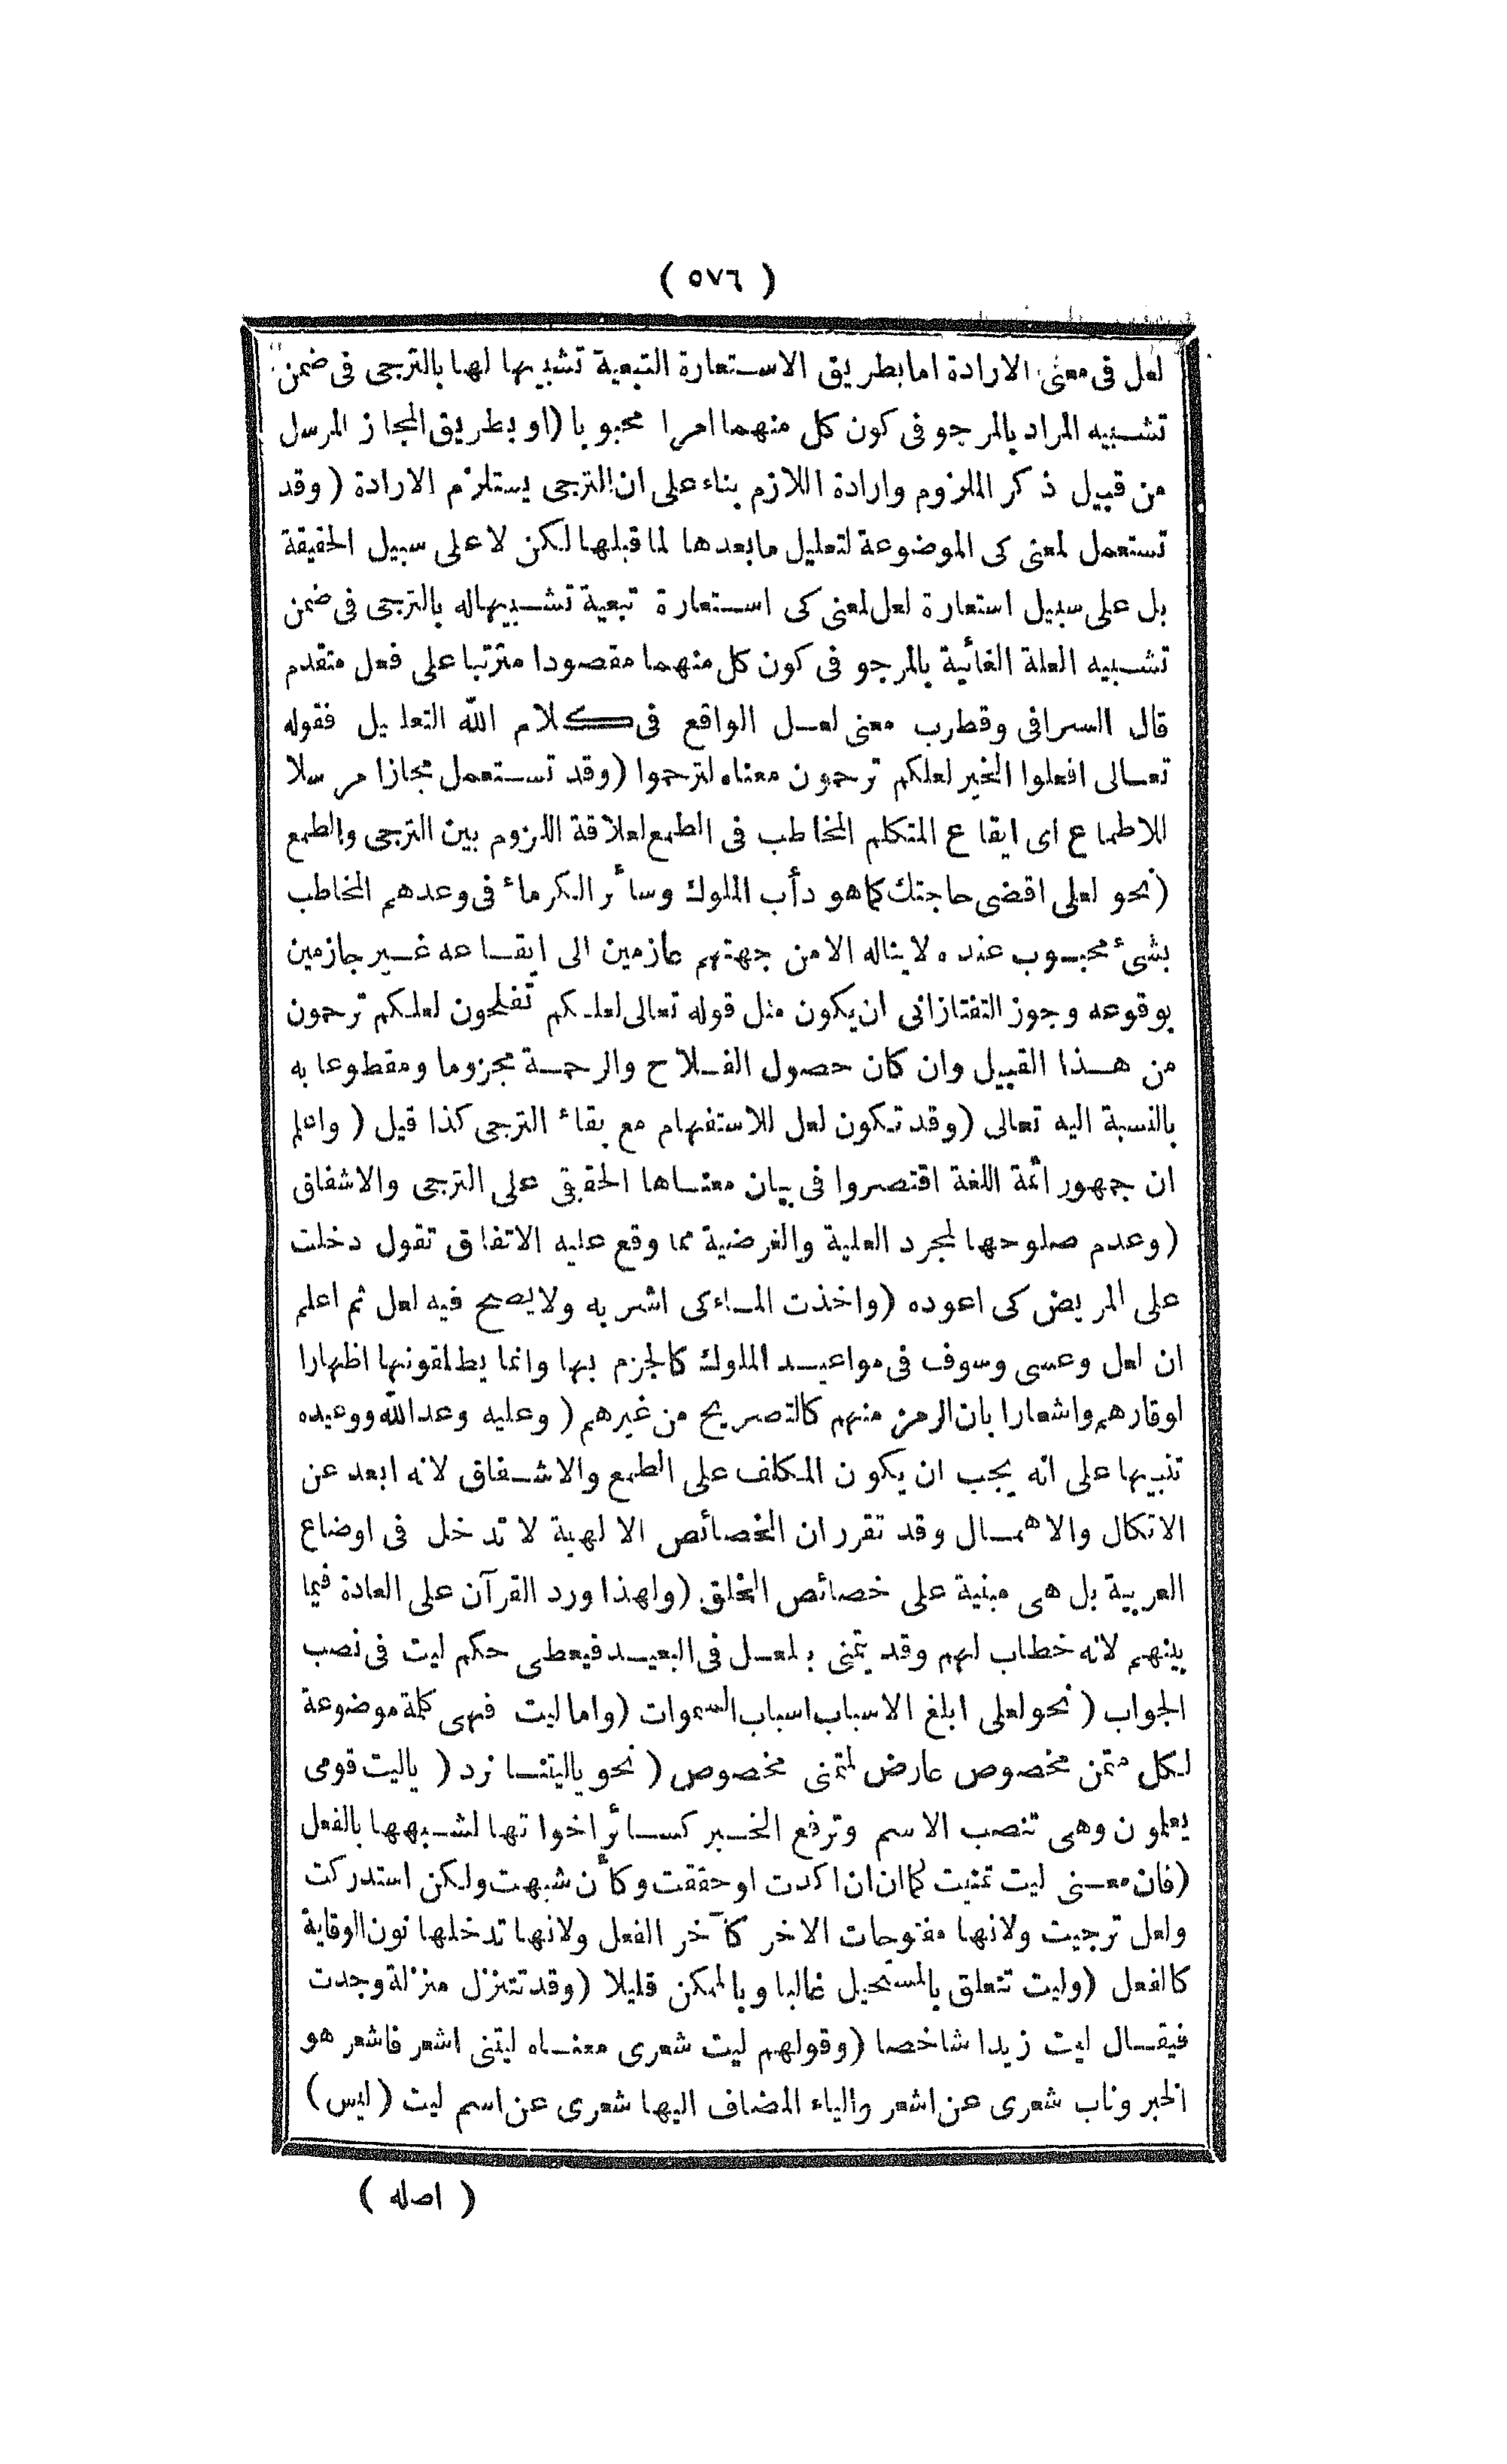 ( ٥٧٦ )
لعل فى معنى الارادة اما بطريق الاستعارة التبعية تشبيها لها بالترجى فى ضمن
تشبيه المراد بالمرجو فى كون كل منهما امرا محبوبا (او بطريق المجاز المرسل
من قبيل ذكر الملزوم وارادة اللازم بناء على ان الترجى يستلزم الارادة (وقد
تستعمل لمعنى كى الموضوعة لتعليل ما بعدها لما قبلها لكن لا على سبيل الحقيقة
بل على سبيل استعارة لعل لمعنى كى استعارة تبعية تشبيها له بالترجى فى ضمن
تشبيه العلة الغائية بالمرجو فى كون كل منهما مقصودا مترتبا على فعل متقدم
قال السرافى وقطرب معنى لعل الواقع فى كلام الله التعليل فقوله
تعالى افعلوا الخير لعلكم ترحمون معناه لترحموا (وقد تستعمل مجازا مرسلا
للاطماع اى ايقاع المتكلم المخاطب فى الطمع لعلاقة اللزوم بين الترجى والطمع
(نحو لعلى اقضى حاجتك كما هو دأب الملوك وسائر الكرماء فى وعدهم المخاطب
بشئ محبوب عنده لا يناله الا من جهتهم عازمين الى ايقاعه غير جازمين
بوقوعه وجوز التفتازانى ان يكون مثل قوله تعالى لعلكم تفلحون لعلكم ترحمون
من هذا القبيل وان كان حصول الفلاح والرحمة مجزوما ومقطوعا به
بالنسبة اليه تعالى (وقد تكون لعل للاستفهام مع بقاء الترجى كذا قيل (واعلم
ان جمهور ائمة اللغة اقتصروا فى بيان معناها الحقيقى على الترجى والاشفاق
(وعدم صلوحها لمجرد العلية والغرضية مما وقع عليه الاتفاق تقول دخلت
على المريض كى اعوده (واخذت الماء كى اشربه ولا يصح فيه لعل ثم اعلم
ان لعل وعسى وسوف فى مواعيد الملوك كالجزم بها وانما يطلقونها اظهارا
لوقارهم واشعارا بان الرمز منهم كالتصريح من غيرهم (وعليه وعد الله ووعيده
تنبيها على انه يجب ان يكون المكلف على الطمع والاشفاق لانه ابعد عن
الاتكال والاهمال وقد تقرر ان الخصائص الالهية لا تدخل فى اوضاع
العربية بل هى مبنية على خصائص الخلق (ولهذا ورد القرآن على العادة فيما
بينهم لانه خطاب لهم وقد يتمنى بلعل فى البعيد فيعطى حكم ليت فى نصب
الجواب (نحو لعلى ابلغ الاسباب اسباب السموات (واما ليت فهى كلمة موضوعة
لكل متمن مخصوص عارض لمتمنى مخصوص (نحو ياليتنا نرد (ياليت قومى
يعلمون وهى تنصب الاسم وترفع الخبر كسائر اخواتها لشبهها بالفعل
(فان معنى ليت تمنيت كما ان ان اكدت او حققت وكأن شبهت ولكن استدركت
ولعل ترجيت ولانها مفتوحات الاخر كآخر الفعل ولانها تدخلها نون الوقاية
كالفعل (وليت تتعلق بالمستحيل غالبا وبالممكن قليلا (وقد تتنزل منزلة وجدت
فيقال ليت زيدا شاخصا (وقولهم ليت شعرى معناه ليتنى اشعر فاشعر هو
الخبر وناب شعرى عن اشعر والياء المضاف اليها شعرى عن اسم ليت (ليس)
( اصله )